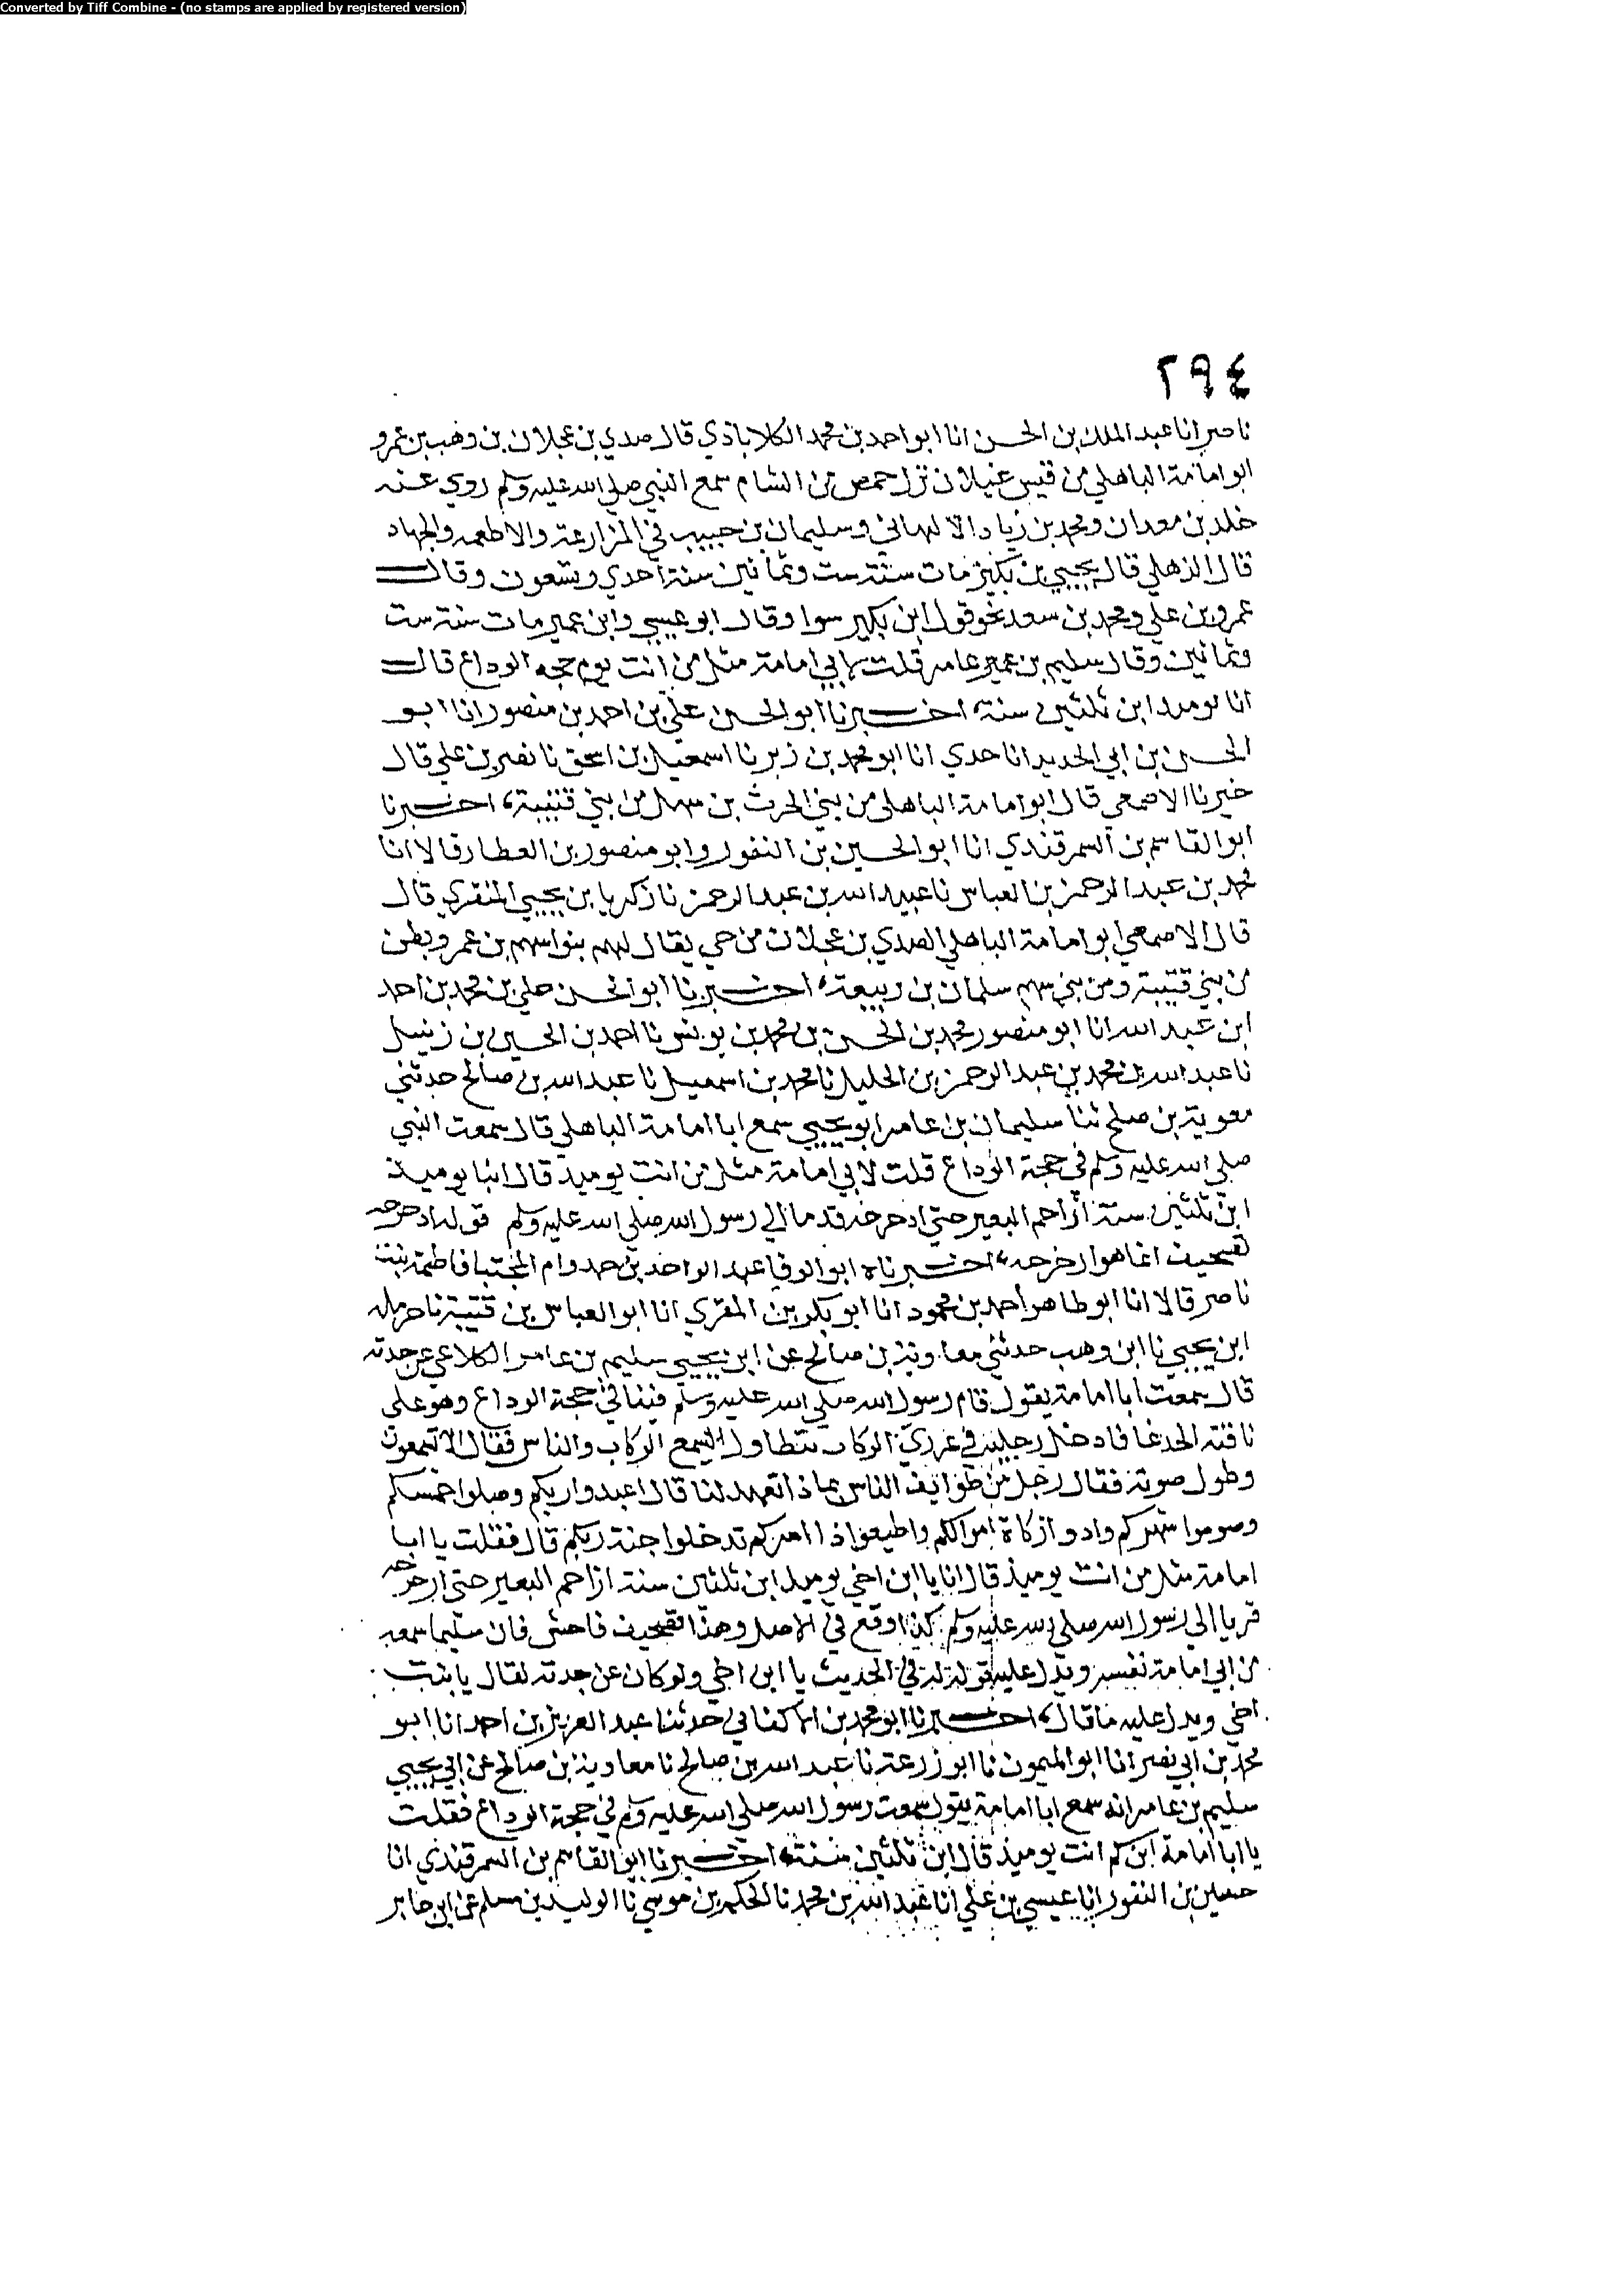 Converted by Tiff Combine - (no stamps are applied by registered version)
٢٩٤
ناصر انا عبد الملك بن الحسن انا ابو احمد بن محمد الكلاباذي قال صدي بن عجلان بن وهب بن عمرو
ابو امامة الباهلي من قيس عيلان نزل حمص من الشام سمع النبي صلي الله عليه وسلم روي عنه
خلد بن معدان ومحمد بن زياد الالهاني وسليمان بن حبيب في المزارعة والاطعمه والجهاد
قال الذهلي قال يحيي بن بكير مات سنة ست وثمانين سنة احدي وتسعون وقال
عمرو بن علي ومحمد بن سعد نحو قول ابن بكير سوا وقال ابو عيسي وابن عمير مات سنة ست
وثمانين وقال سليم بن عمير عامر قلت لابي امامة مثل من انت يوم حجه الوداع قال
انا يوميد ابن ثلثين سنة، اخبرنا ابو الحسن علي بن احمد بن منصور انا ابو
الحسن بن ابي الحديد انا جدي انا ابو محمد بن زبر نا اسمعيل بن اسحق نا نصر بن علي قال
خبرنا الاصمعي قال ابو امامة الباهلي من بني الحرث بن سهل من بني قتيبة، اخبرنا
ابو القاسم بن السمرقندي انا ابو الحسين بن النقور وابو منصور بن العطار قالا انا
محمد بن عبد الرحمن بن العباس نا عبيد الله بن عبد الرحمن نا زكريا بن يحيي المنقري قال
قال الاصمعي ابو امامة الباهلي الصدي بن عجلان من حي يقال لهم بنو اسهم بن عمرو بطن
من بني قتيبة ومن بني سهم سلمان بن ربيعة، اخبرنا ابو الحسن علي بن محمد بن احمد
ابن عبد الله انا ابو منصور محمد بن الحسن بن محمد بن يونس نا احمد بن الحسين بن زنبيل
نا عبد الله بن محمد بن عبد الرحمن بن الخليل نا محمد بن اسمعيل نا عبد الله بن صالح حدثني
معوية بن صلح ثنا سليمان بن عامر ابو يحيي سمع ابا امامة الباهلي قال سمعت النبي
صلي الله عليه وسلم في حجة الوداع قلت لابي امامة مثل من انت يوميذ قال انا يوميذ
ابن ثلثين سنة ازاحم البعير حتي ادحرجه قدما الي رسول الله صلي الله عليه وسلم قوله ادحرجه
تصحيف انما هو ازحزحه، اخبرناه ابو الوفا عبد الواحد بن حمد وام المجتبا فاطمة بنت
ناصر قالا انا ابو طاهر احمد بن محمود انا ابو بكر بن المقري انا ابو العباس بن قتيبة نا حرمله
ابن يحيي نا ابن وهب حدثني معاوية بن صالح عن ابن يحيي سليم بن عامر الكلاعي عن جدته
قال سمعت ابا امامة يقول قام رسول الله صلي الله عليه وسلم فينا في حجة الوداع وهو علي
ناقته الجدعا فادخل رجليه في غرزي الركاب يتطاول ليسمع الركاب والناس فقال الا تسمعون
وطول صوته فقال رجل من طوايف الناس بماذا تعهد لنا قال اعبدوا ربكم وصلوا خمسكم
وصوموا شهركم وادوا زكاة اموالكم واطيعوا اذا امركم تدخلوا جنة ربكم قال فقلت يا ابا
امامة مثل من انت يوميذ قال انا يا ابن اخي يوميد ابن ثلثين سنة ازاحم البعير حتي ازحزحه
قربا الي رسول الله صلي الله عليه وسلم كذا وقع في الاصل وهذا تصحيف فاحش فان سليما سمعه
من ابي امامة نفسه ويدل عليه قوله له في الحديث يا ابن اخي ولو كان عن جدته لقال يا بنت
اخي ويدل عليه ما قال، اخبرنا ابو محمد بن الاكفاني حدثنا عبد العزيز بن احمد انا ابو
محمد بن ابي نصر انا ابو الميمون نا ابو زرعة نا عبد الله بن صالح نا معاوية بن صالح عن ابي يحيي
سليم بن عامر انه سمع ابا امامة يقول سمعت رسول الله صلي الله عليه وسلم في حجة الوداع فقلت
يا ابا امامة ابن كم انت يوميذ قال ابن ثلثين سنة، اخبرنا ابو القاسم بن السمرقندي انا
حسين بن النقور انا عيسي بن علي انا عبد الله بن محمد نا الحكم بن موسي نا الوليد بن مسلم عن ابن جابر